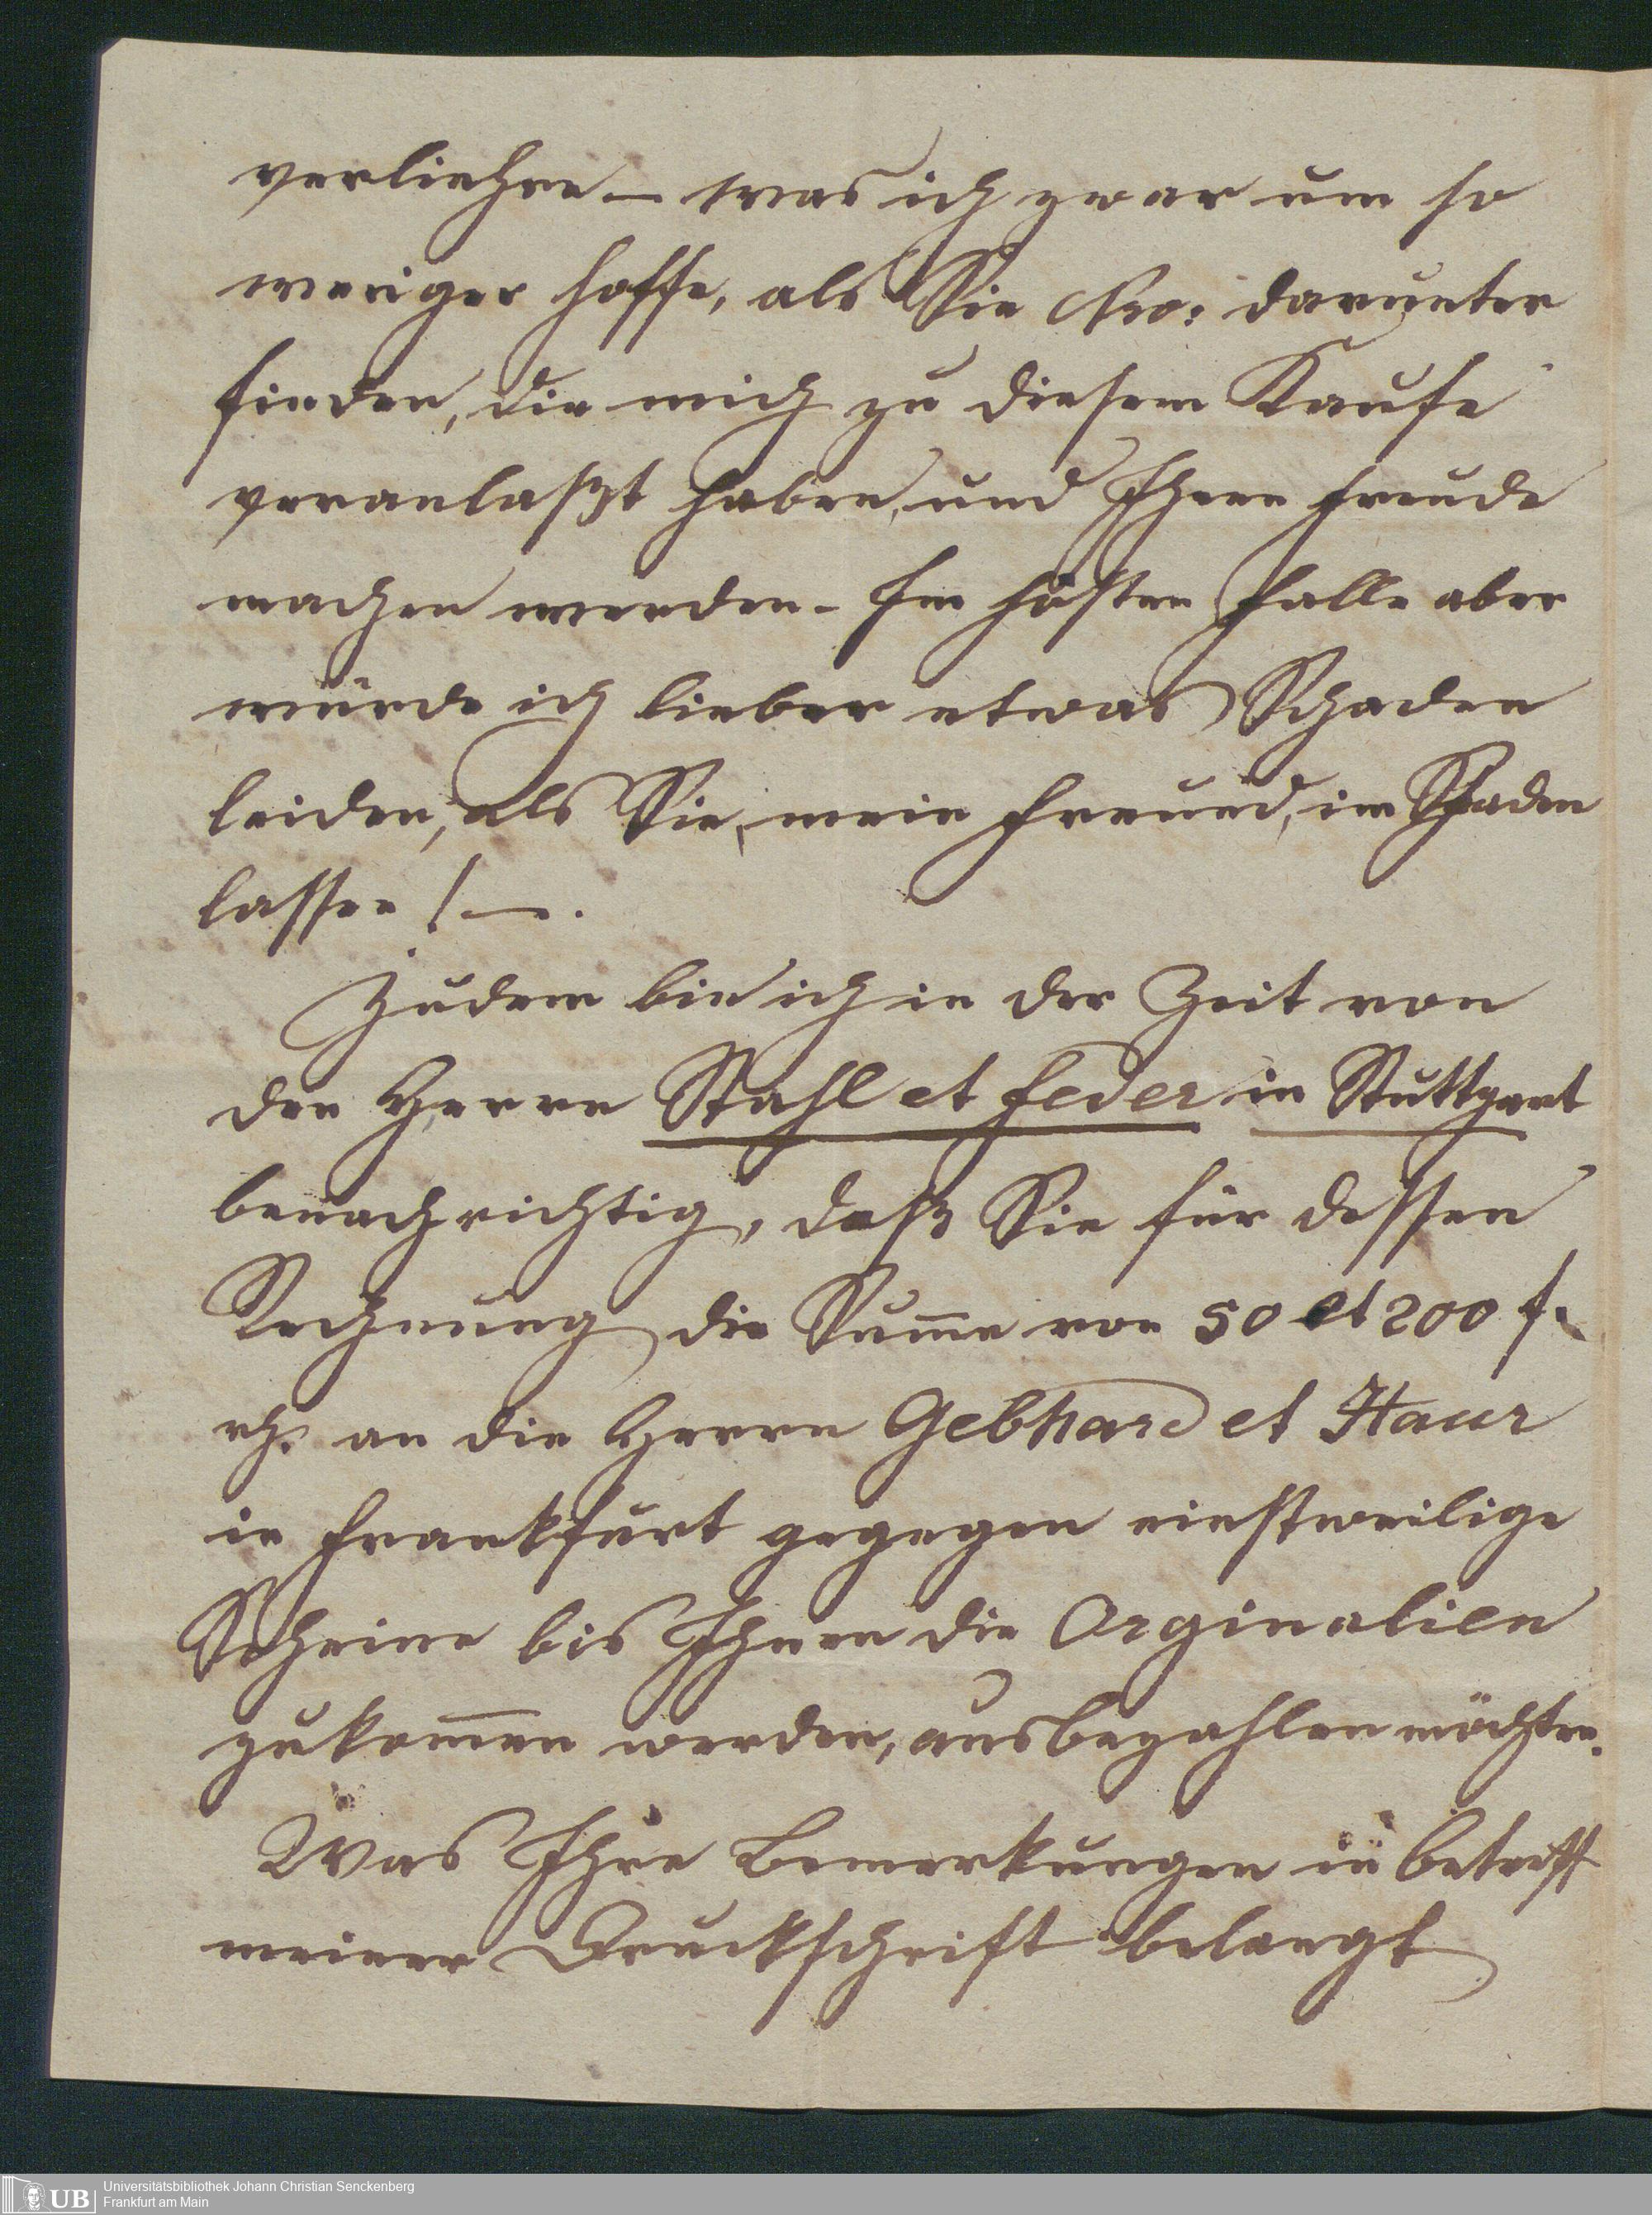 verliehre – was ich zwar um so
weniger hoffe, als Sie Nro: darunter
finden, die mich zu diesem Kaufe
veranlaßt haben, und Ihnen Freude
machen werden – Im hösten Falle aber
würde ich lieber etwas Schaden
leiden, als Sie, mein Freund, im Schaden
lassen! –.
Zudem bin ich in der Zeit von
den Herren Stahl et Feder in Stuttgart
benachrichtig, daß Sie für dessen
Rechnung die Sum̄e von 50 et 200 f.
rh. an die Herren Gebhard et Haur
in Frankfurt gegegen einstweilige
Scheine bis Ihnen die Orginalien
zukom̄en werden, ausbezahlen möchten.
Was Ihre Bemerkungen in betreff
meiner Druckschrift belangt
Universitätsbibliothek Johann Christian Senckenberg
Frankfurt am Main
UB